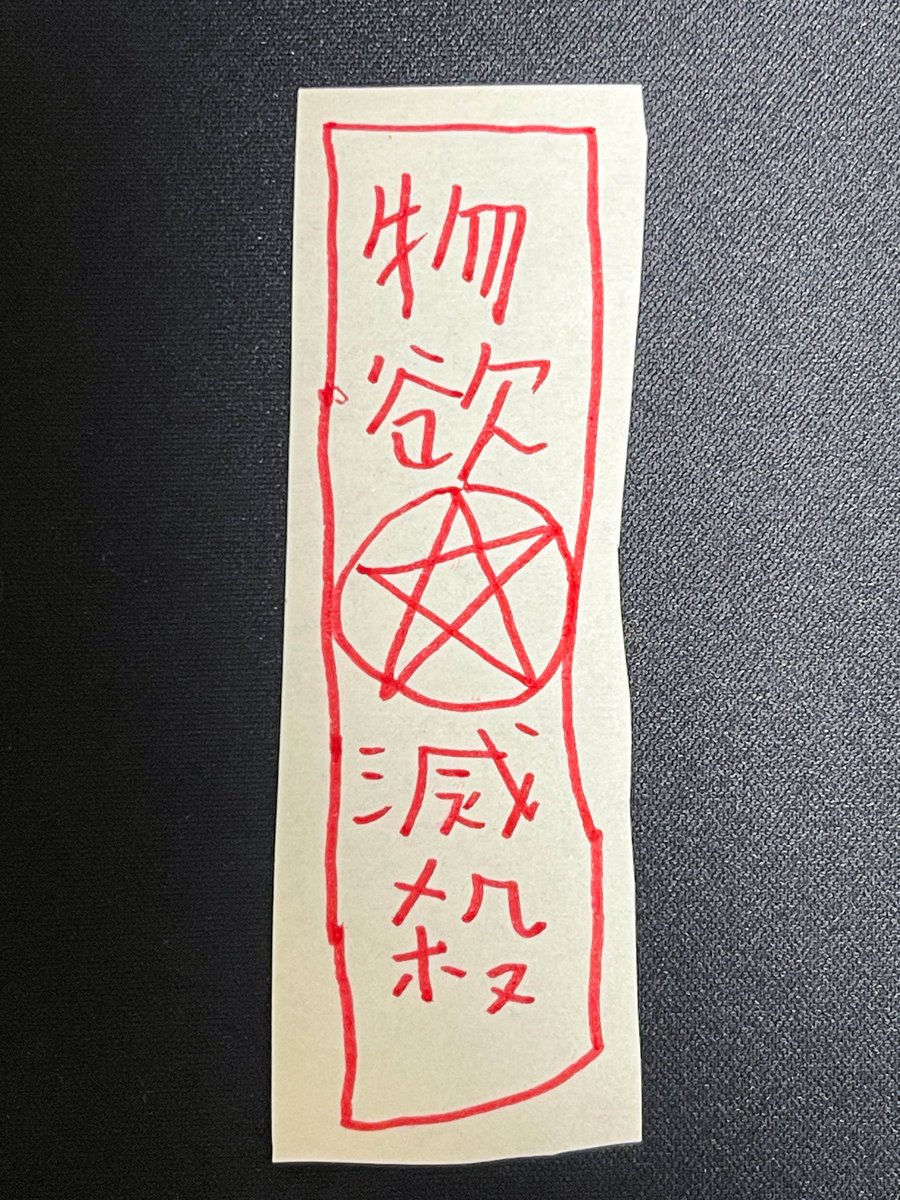 物欲
滅殺